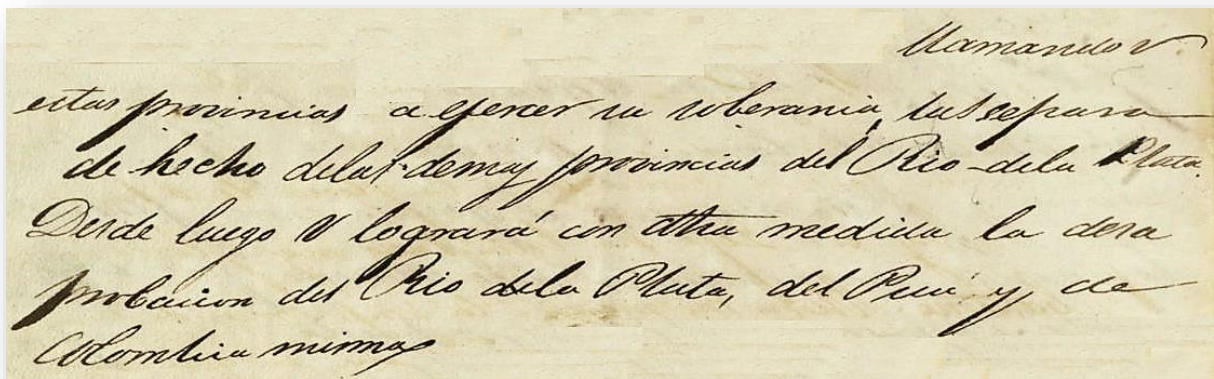 llamando V
estas provincias a ejercer su soberania, las separa
de hecho delas demas provincias del Rio de la Plata.
Desde luego V logrará con dha medida la desa
probacion del Rio dela Plata, del Perú y de
Colombia misma